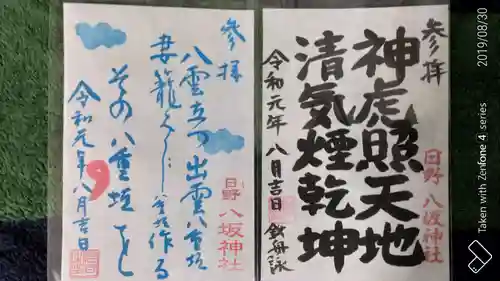 参拝
神虎照天地
清気煙乾坤
令和元年 八月吉日 鉄舟詠
日野 八坂神社
参拝
八雲立つ 出雲八重垣
妻籠みに 八重垣作る
その八重垣を
令和元年八月吉日
日野 八坂神社
2019/08/30
Taken with Zenfone 4 series